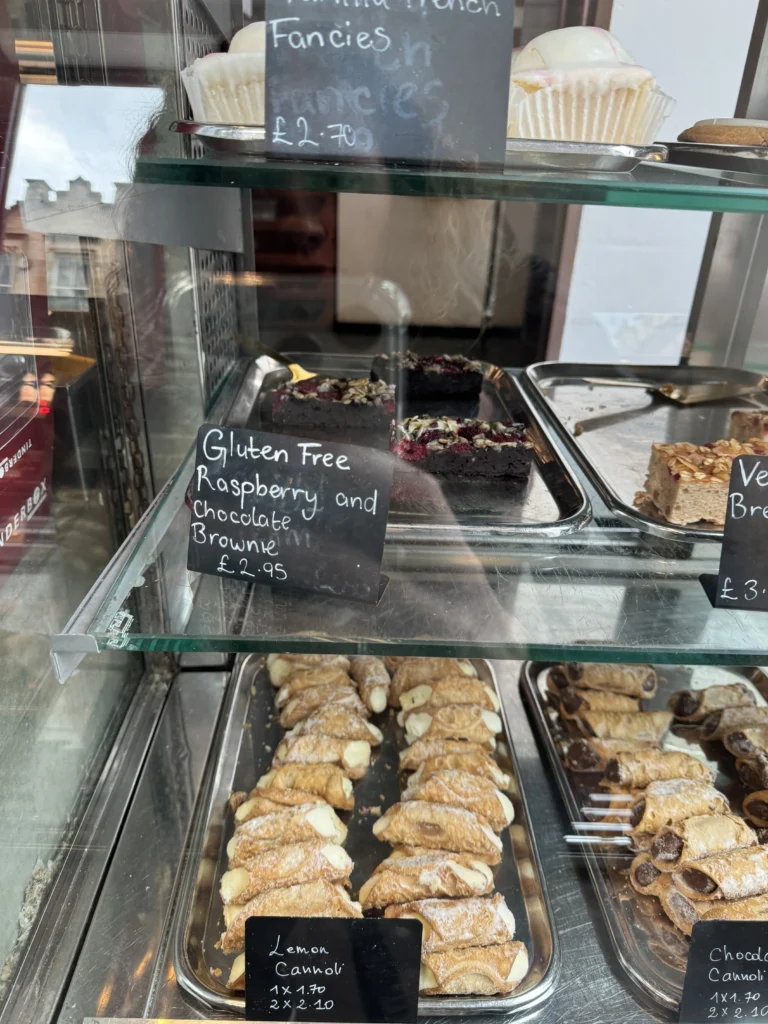 Vanilla French
Fancies
£2.70
Gluten Free
Raspberry and
chocolate
Brownie
£2.95
Ve
Bre
£3.
TINDERBOX
NDERBOX
Lemon
Cannoli
1x1.70
2x2.10
Choco
Cannoli
1x1.70
2x2.10